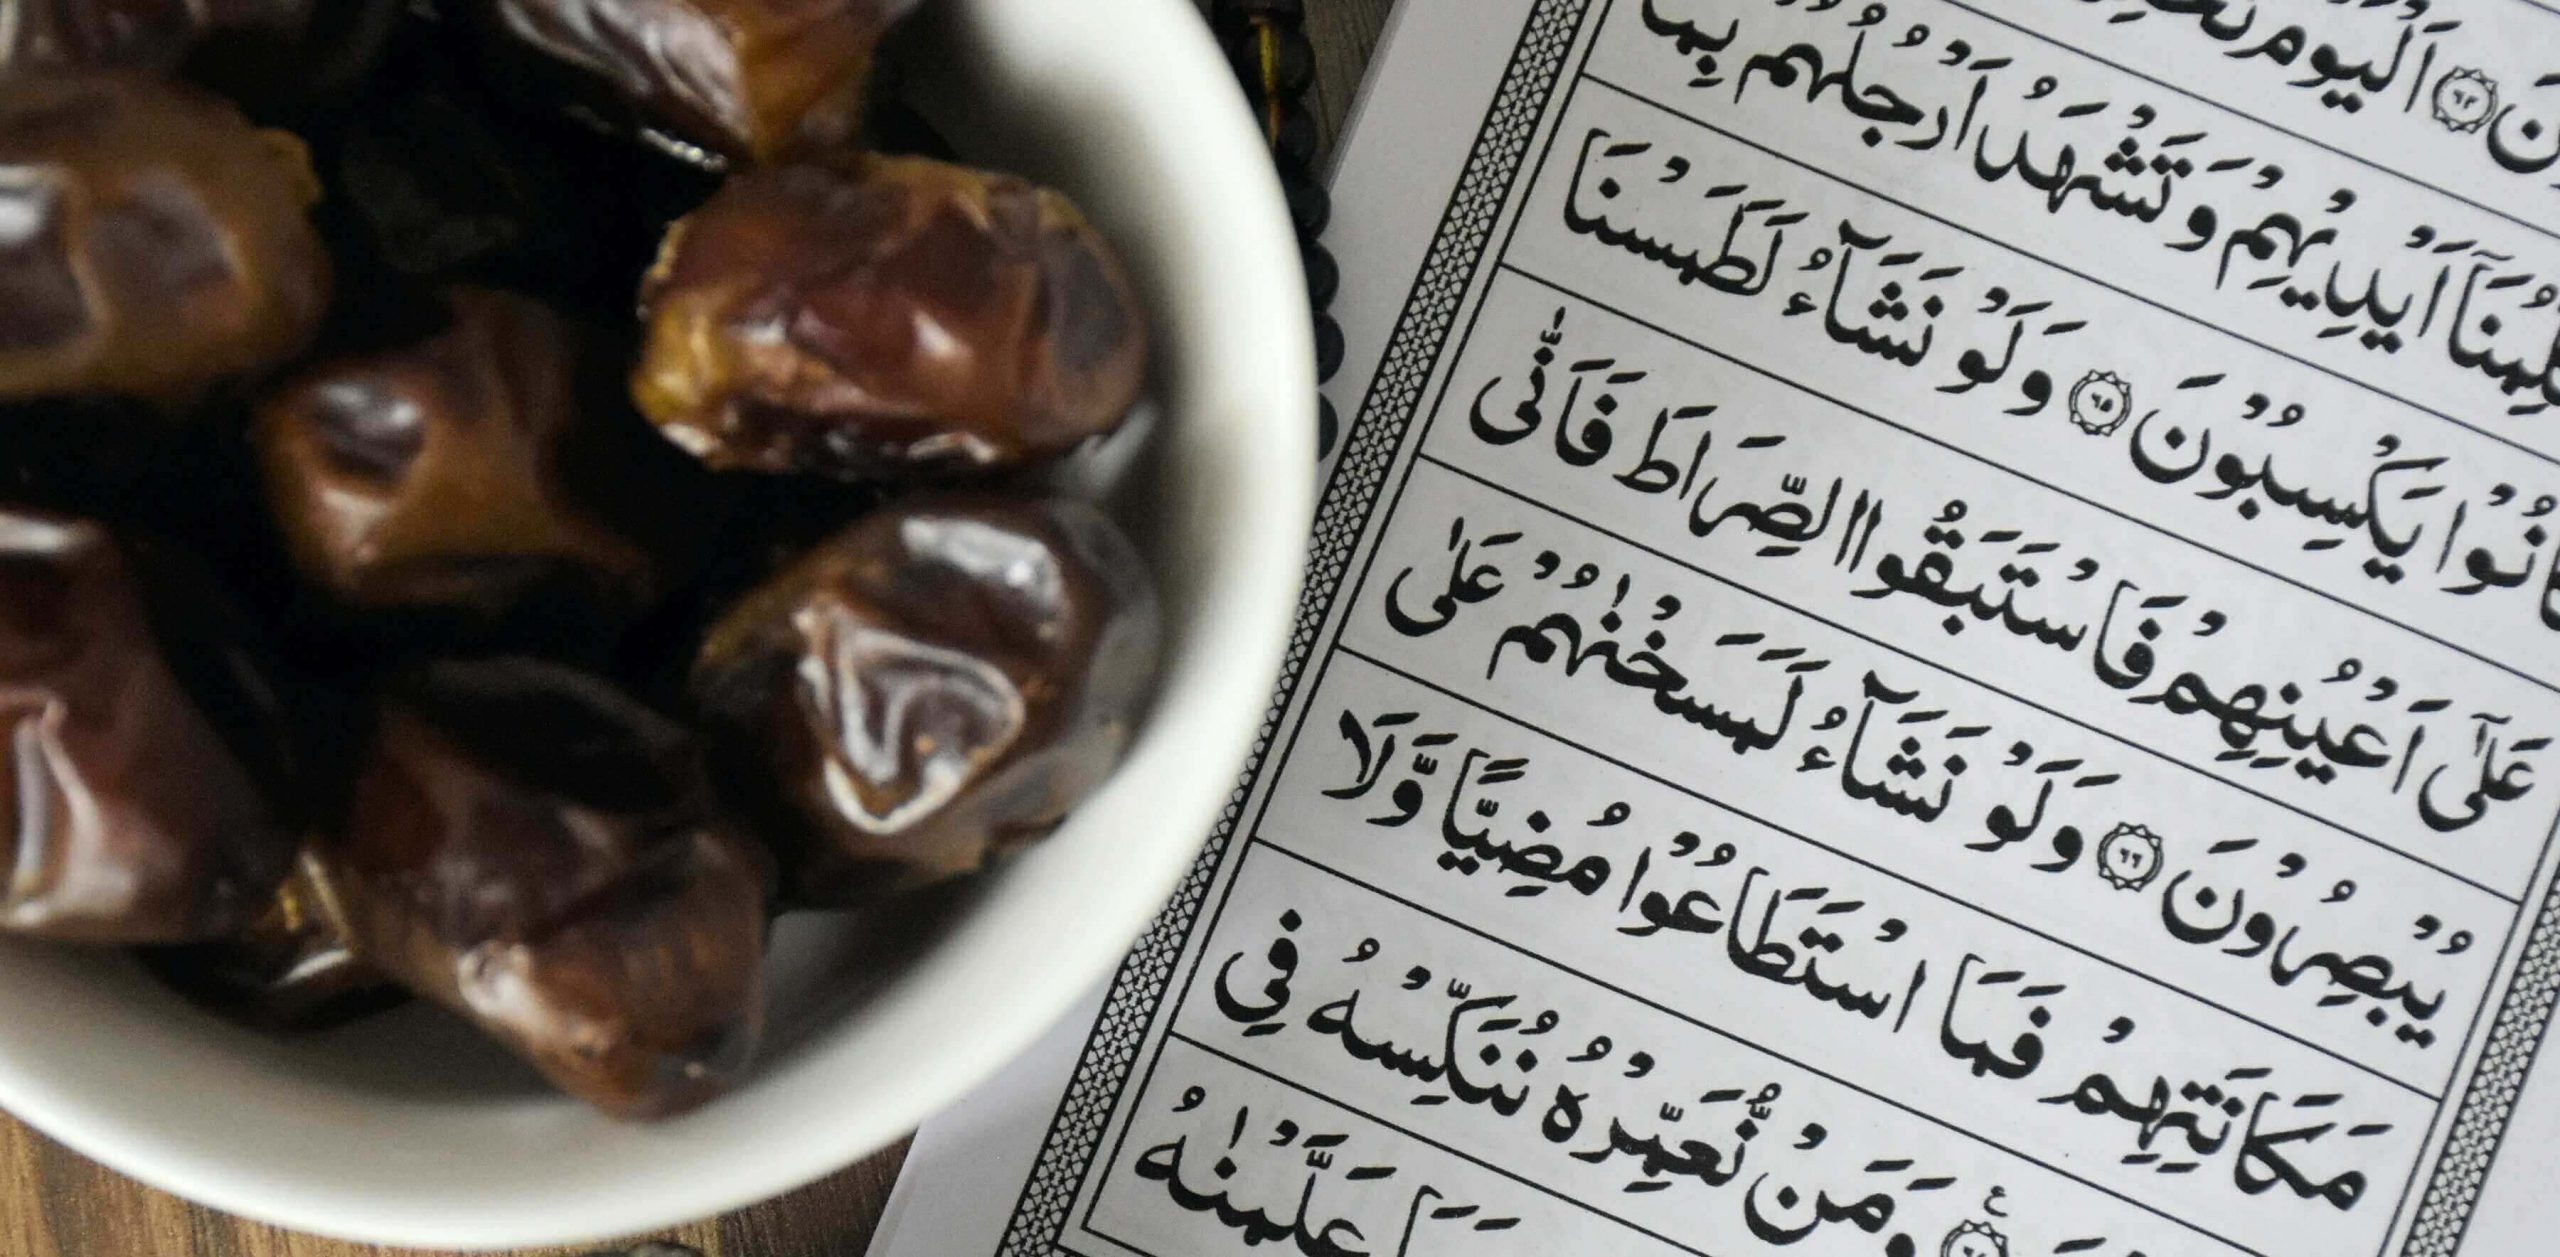 اَلْيَوْمَ
اَيْدِيْهِمْ وَتَشْهَدُ اَرْجُلُهُمْ بِمَا
كَانُوْا يَكْسِبُوْنَ ٦٥ وَلَوْ نَشَآءُ لَطَمَسْنَا
عَلٰٓى اَعْيُنِهِمْ فَاسْتَبَقُوا الصِّرَاطَ فَاَنّٰى
يُبْصِرُوْنَ ٦٦ وَلَوْ نَشَآءُ لَمَسَخْنٰهُمْ عَلٰى
مَكَانَتِهِمْ فَمَا اسْتَطَاعُوْا مُضِيًّا وَّلَا
وَمَنْ نُّعَمِّرْهُ نُنَكِّسْهُ فِى
عَلَّمْنٰهُ